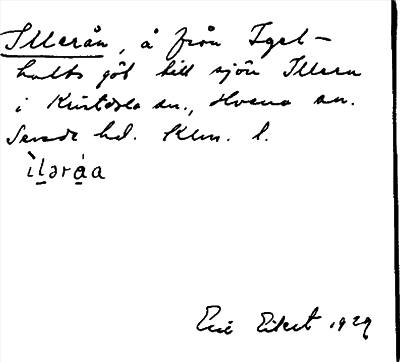 Illerån, å från Igel-
hults göl till sjön Illern
i Kristdala sn., Hvena sn.
Sevede hd. Klm. l.
ìl̠ərá̠a
Eric Elket 1929